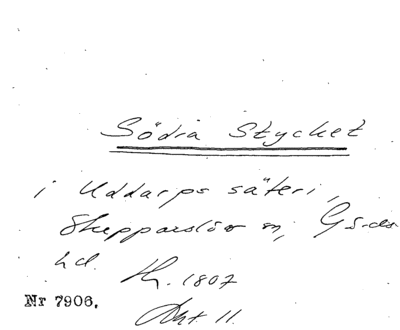 Södra Stycket
i Uddarps säteri,
Skepparslöv sn, Gärds
hd. Th. 1807
Nr 7906.
Akt 11.